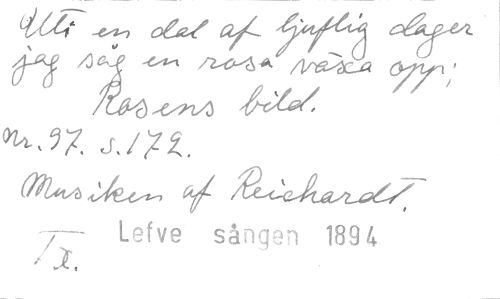 Uti en dal af ljuflig dager
jag såg en rosa växa opp;
Rosens bild.
Nr. 97. s. 172.
Musiken af Reichardt.
Lefve sången 1894
Tx.